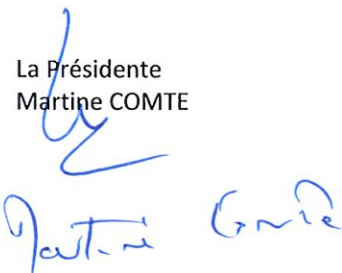 La Présidente
Martine COMTE
Martine Comte